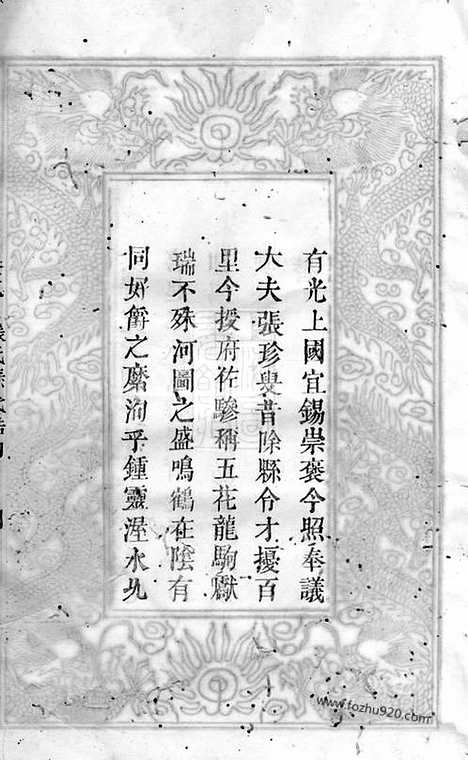 有光上國宜錫崇褒今照奉議
大夫張珍叟昔除縣令才擾百
里今授府佐驂稱五花龍駒獻
瑞不殊河圖之盛鳴鶴在陰有
同好爵之縻洵乎鍾靈渥水允
www.fozhu920.com